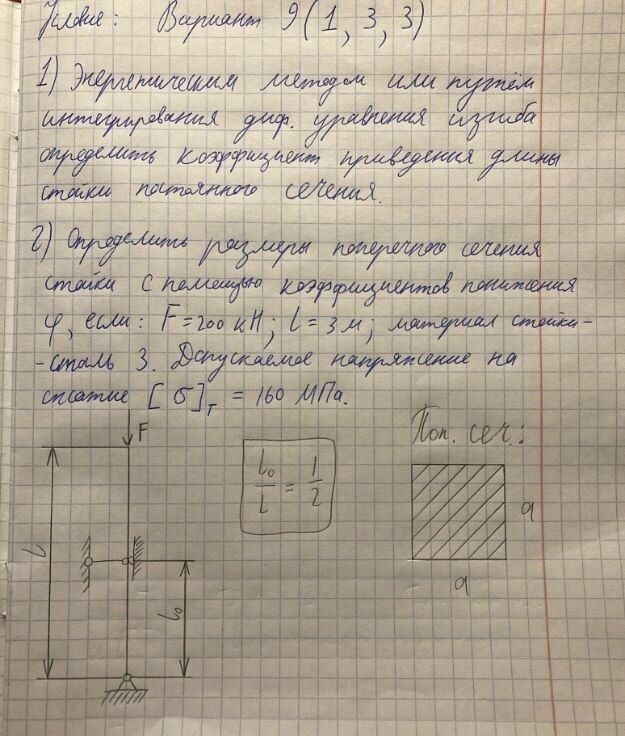 Условие: Вариант 9 (1, 3, 3)
1) Энергетическим методом или путём
интегрирования диф. уравнения изгиба
определить коэффициент приведения длины
стойки постоянного сечения.
2) Определить размеры поперечного сечения
стойки с помощью коэффициентов понижения
φ, если: F = 200 кН; l = 3 м; материал стойки-
-сталь 3. Допускаемое напряжение на
сжатие [σ]т = 160 МПа.
F
Поп. сеч.:
l₀/l = 1/2
a
l
l₀
a